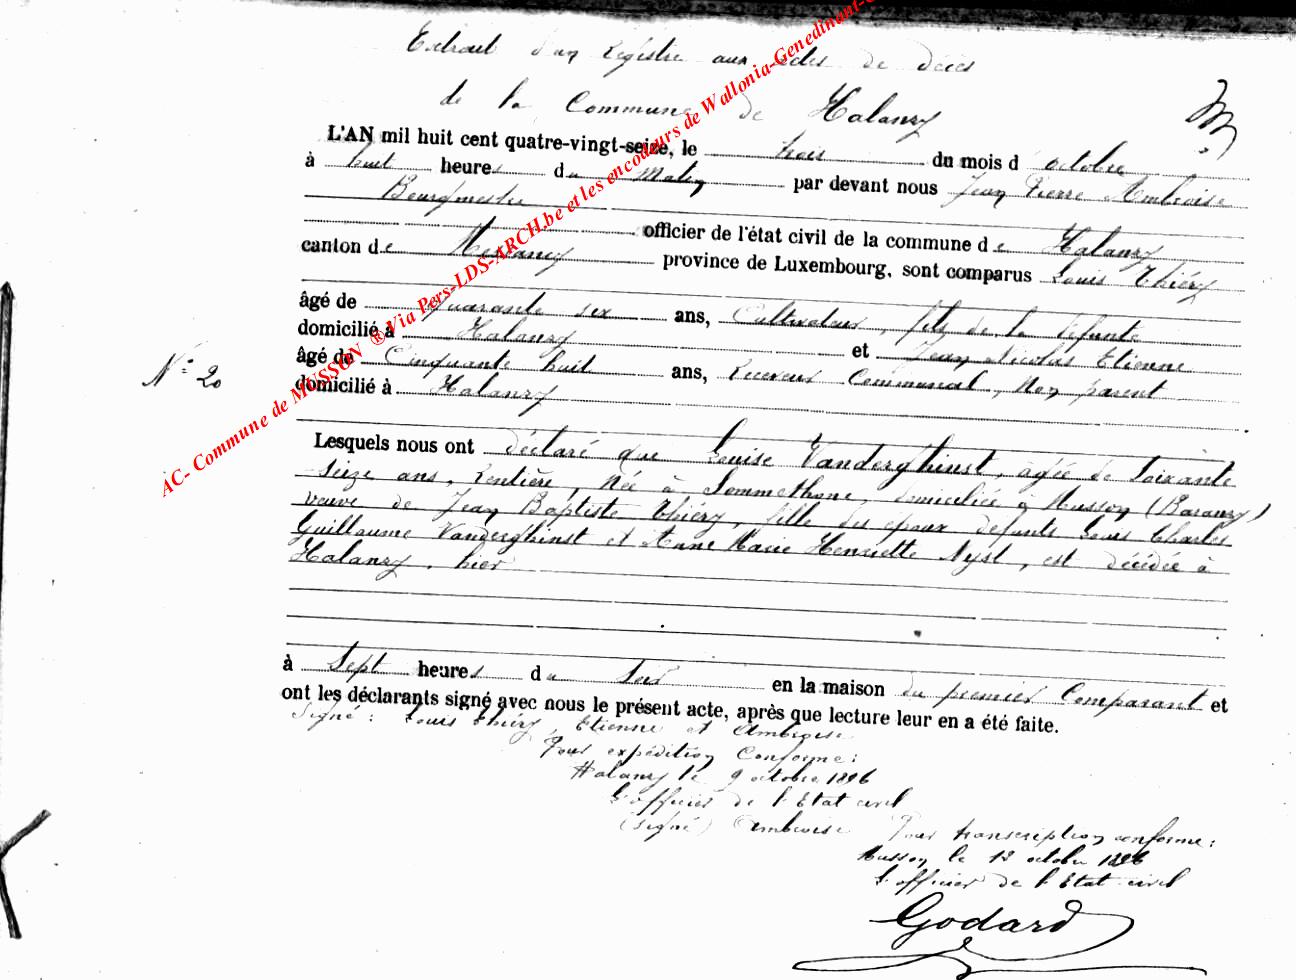 Extrait d'un Régistre aux Actes de décès
de la Commune de Halanzy
L'AN mil huit cent quatre-vingt-seize, le trois du mois d'octobre
à huit heures du Matin par devant nous Jean Pierre Ambroise
Bourgmestre
officier de l'état civil de la commune de Halanzy
canton de Messancy province de Luxembourg, sont comparus Louis Thiéry
âgé de Quarante six ans, Cultivateur, fils de la défunte
domicilié à Halanzy et Jean Nicolas Etienne
âgé de Cinquante huit ans, Receveur Communal, Non parent
domicilié à Halanzy
N° 20
Lesquels nous ont déclaré que Louise Vanderghinst, agée de Soixante
seize ans, Rentière, Née à Sommethone, domiciliée à Musson (Baranzy)
veuve de Jean Baptiste Thiéry, fille des époux défunts Louis Charles
Guillaume Vanderghinst et Anne Marie Henriette Nyst, est décédée à
Halanzy, hier
à Sept heures du Soir en la maison du premier Comparant et
ont les déclarants signé avec nous le présent acte, après que lecture leur en a été faite.
Signé: Louis Thiéry, Etienne et Ambroise
Pour expédition Conforme:
Halanzy le 9 octobre 1896
L'officier de l'Etat civil
(signé) Ambroise
Pour transcription conforme:
Musson le 12 octobre 1896
L'officier de l'Etat civil
Godard
AC- Commune de MUSSON ® Via Pers-LDS-ARCH.be et les encodeurs de Wallonia-Genedinant-